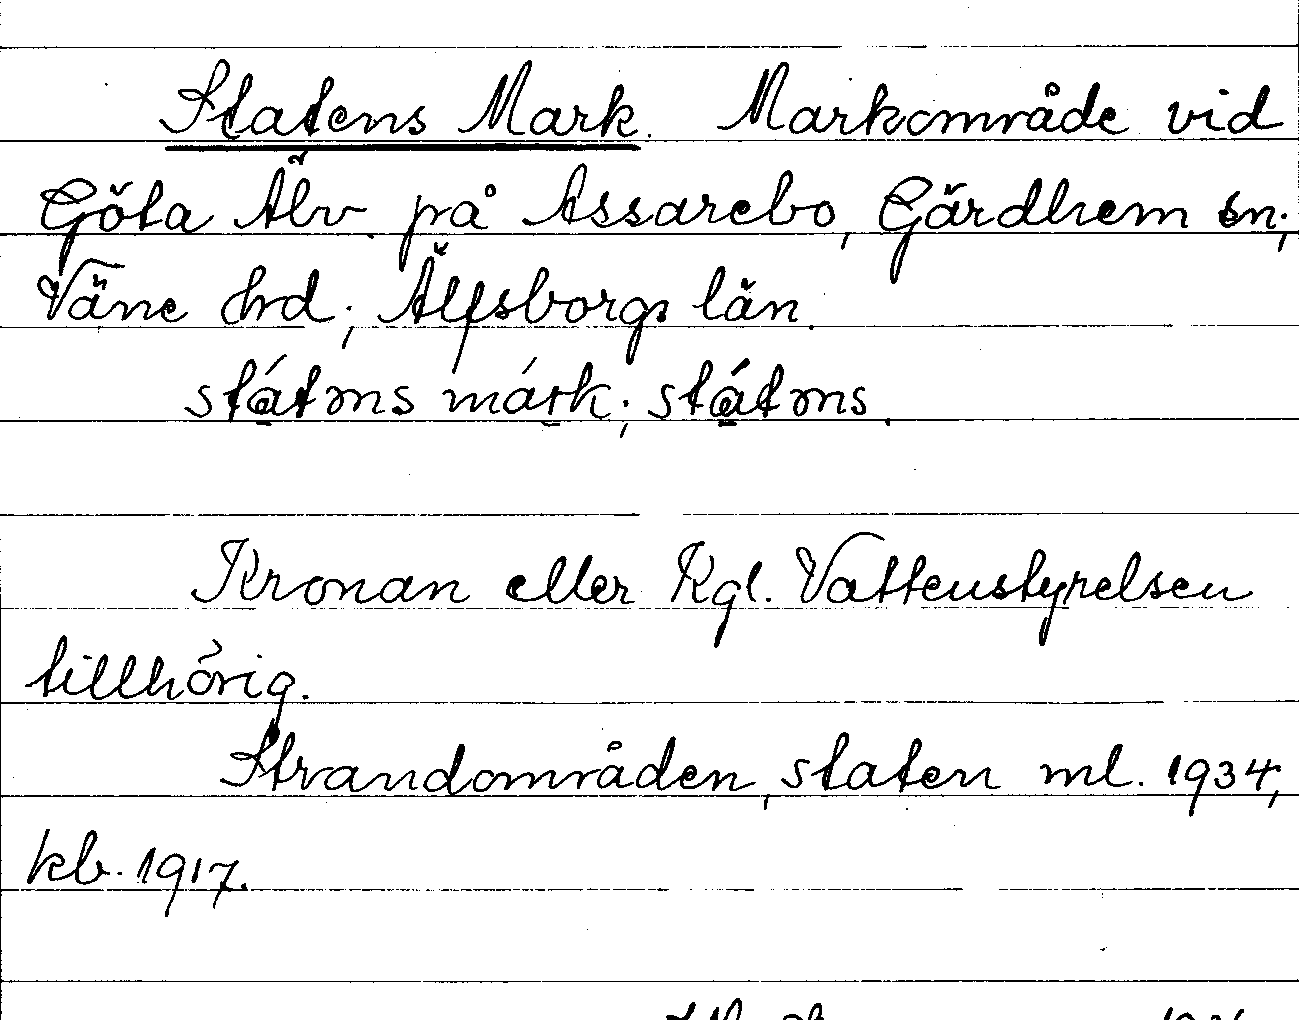 Statens Mark. Markområde vid
Göta Älv på Assarebo, Gärdhem sn;
Väne hrd; Älfsborgs län.
státɷns márk; státɷns.
Kronan eller Kgl. Vattenstyrelsen
tillhörig.
Strandområden, staten ml. 1934,
kb. 1917.